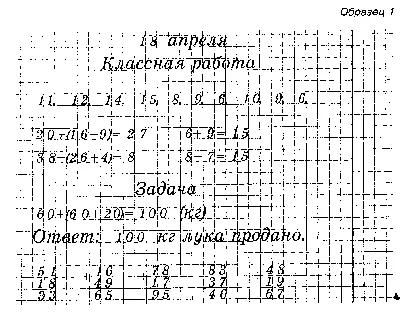 Образец 1
18 апреля
Классная работа
11, 12, 14, 15, 8, 9, 6, 10, 9, 6,
20+(16-9)= 27 6+9=15
38-(26+4)= 8 8+7=15
Задача
60+(60-20)=100 (кг)
Ответ: 100 кг лука продано.
51 16 78 83 48
18 49 17 37 19
33 65 95 46 67